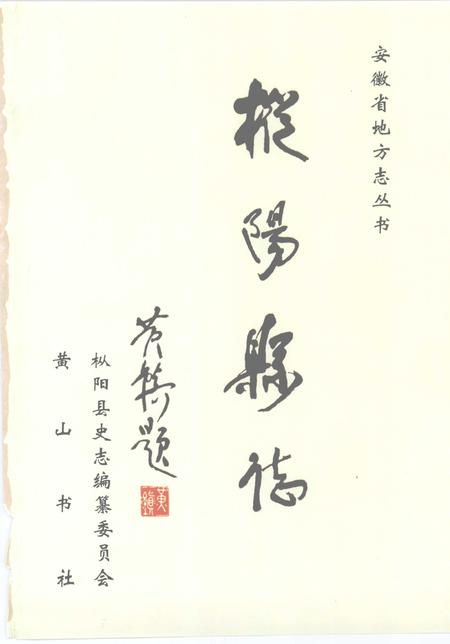 安徽省地方志丛书
樅陽縣誌
黄鎮题
黄鎮
枞阳县史志编纂委员会
黄山书社